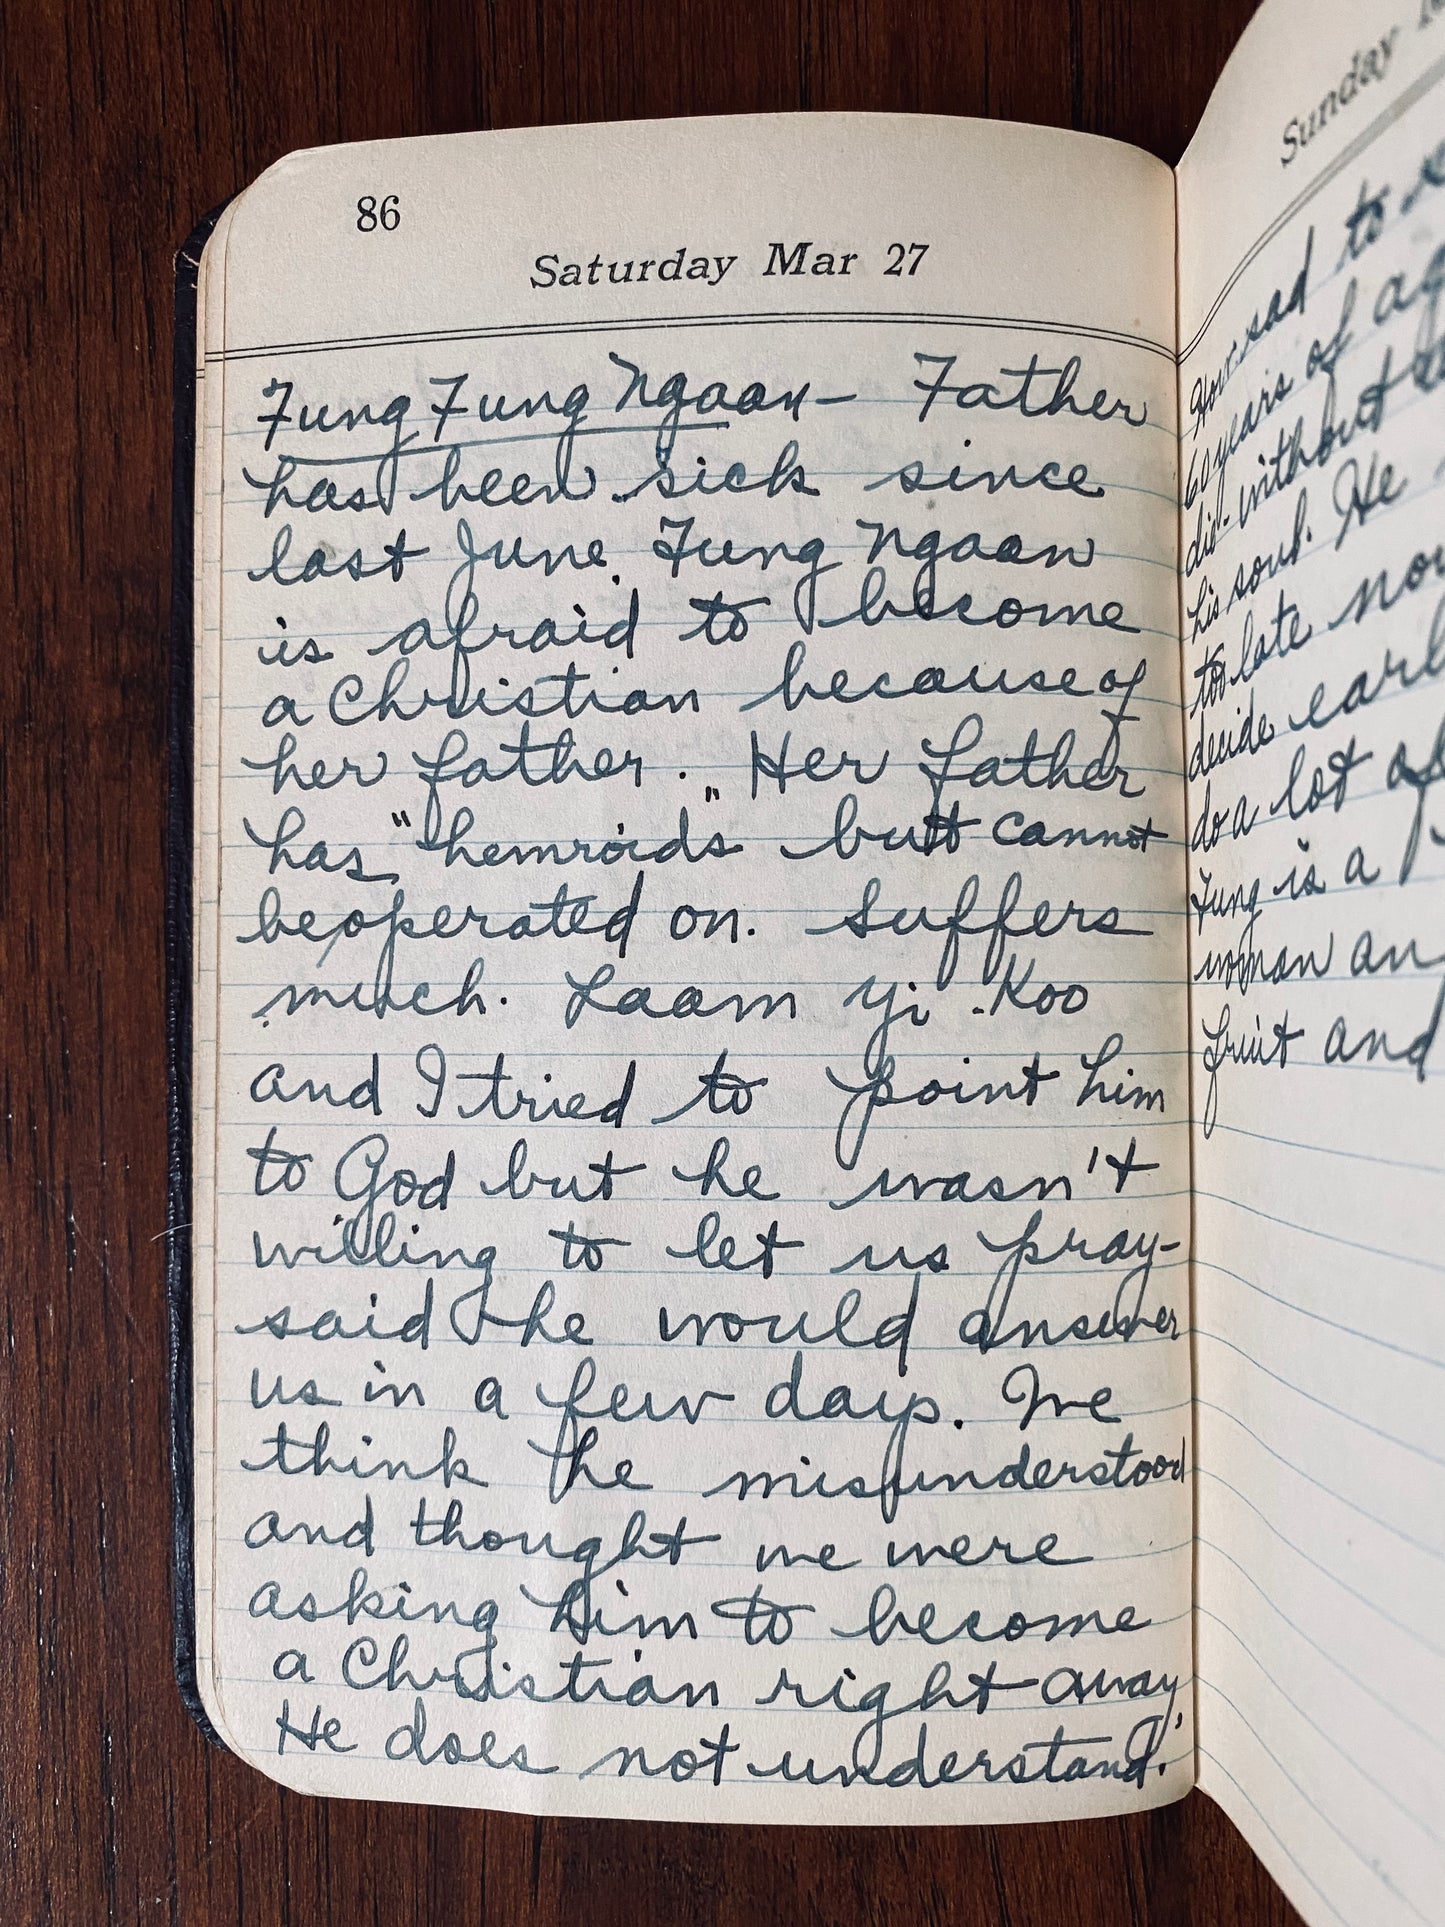 86
Saturday Mar 27
Fung Fung Ngaan – Father
has been sick since
last June. Fung Ngaan
is afraid to become
a Christian because of
her father. Her father
has "hemroids" but cannot
be operated on. Suffers
much. Laam Yi Koo
and I tried to point him
to God but he wasn't
willing to let us pray –
said he would answer
us in a few days. We
think he misunderstood
and thought we were
asking him to become
a Christian right away.
He does not understand.
Sunday
How sad to
60 years of
did without
his soul. He
too late now
decide
do a lot of
Fung is a
woman
fruit and